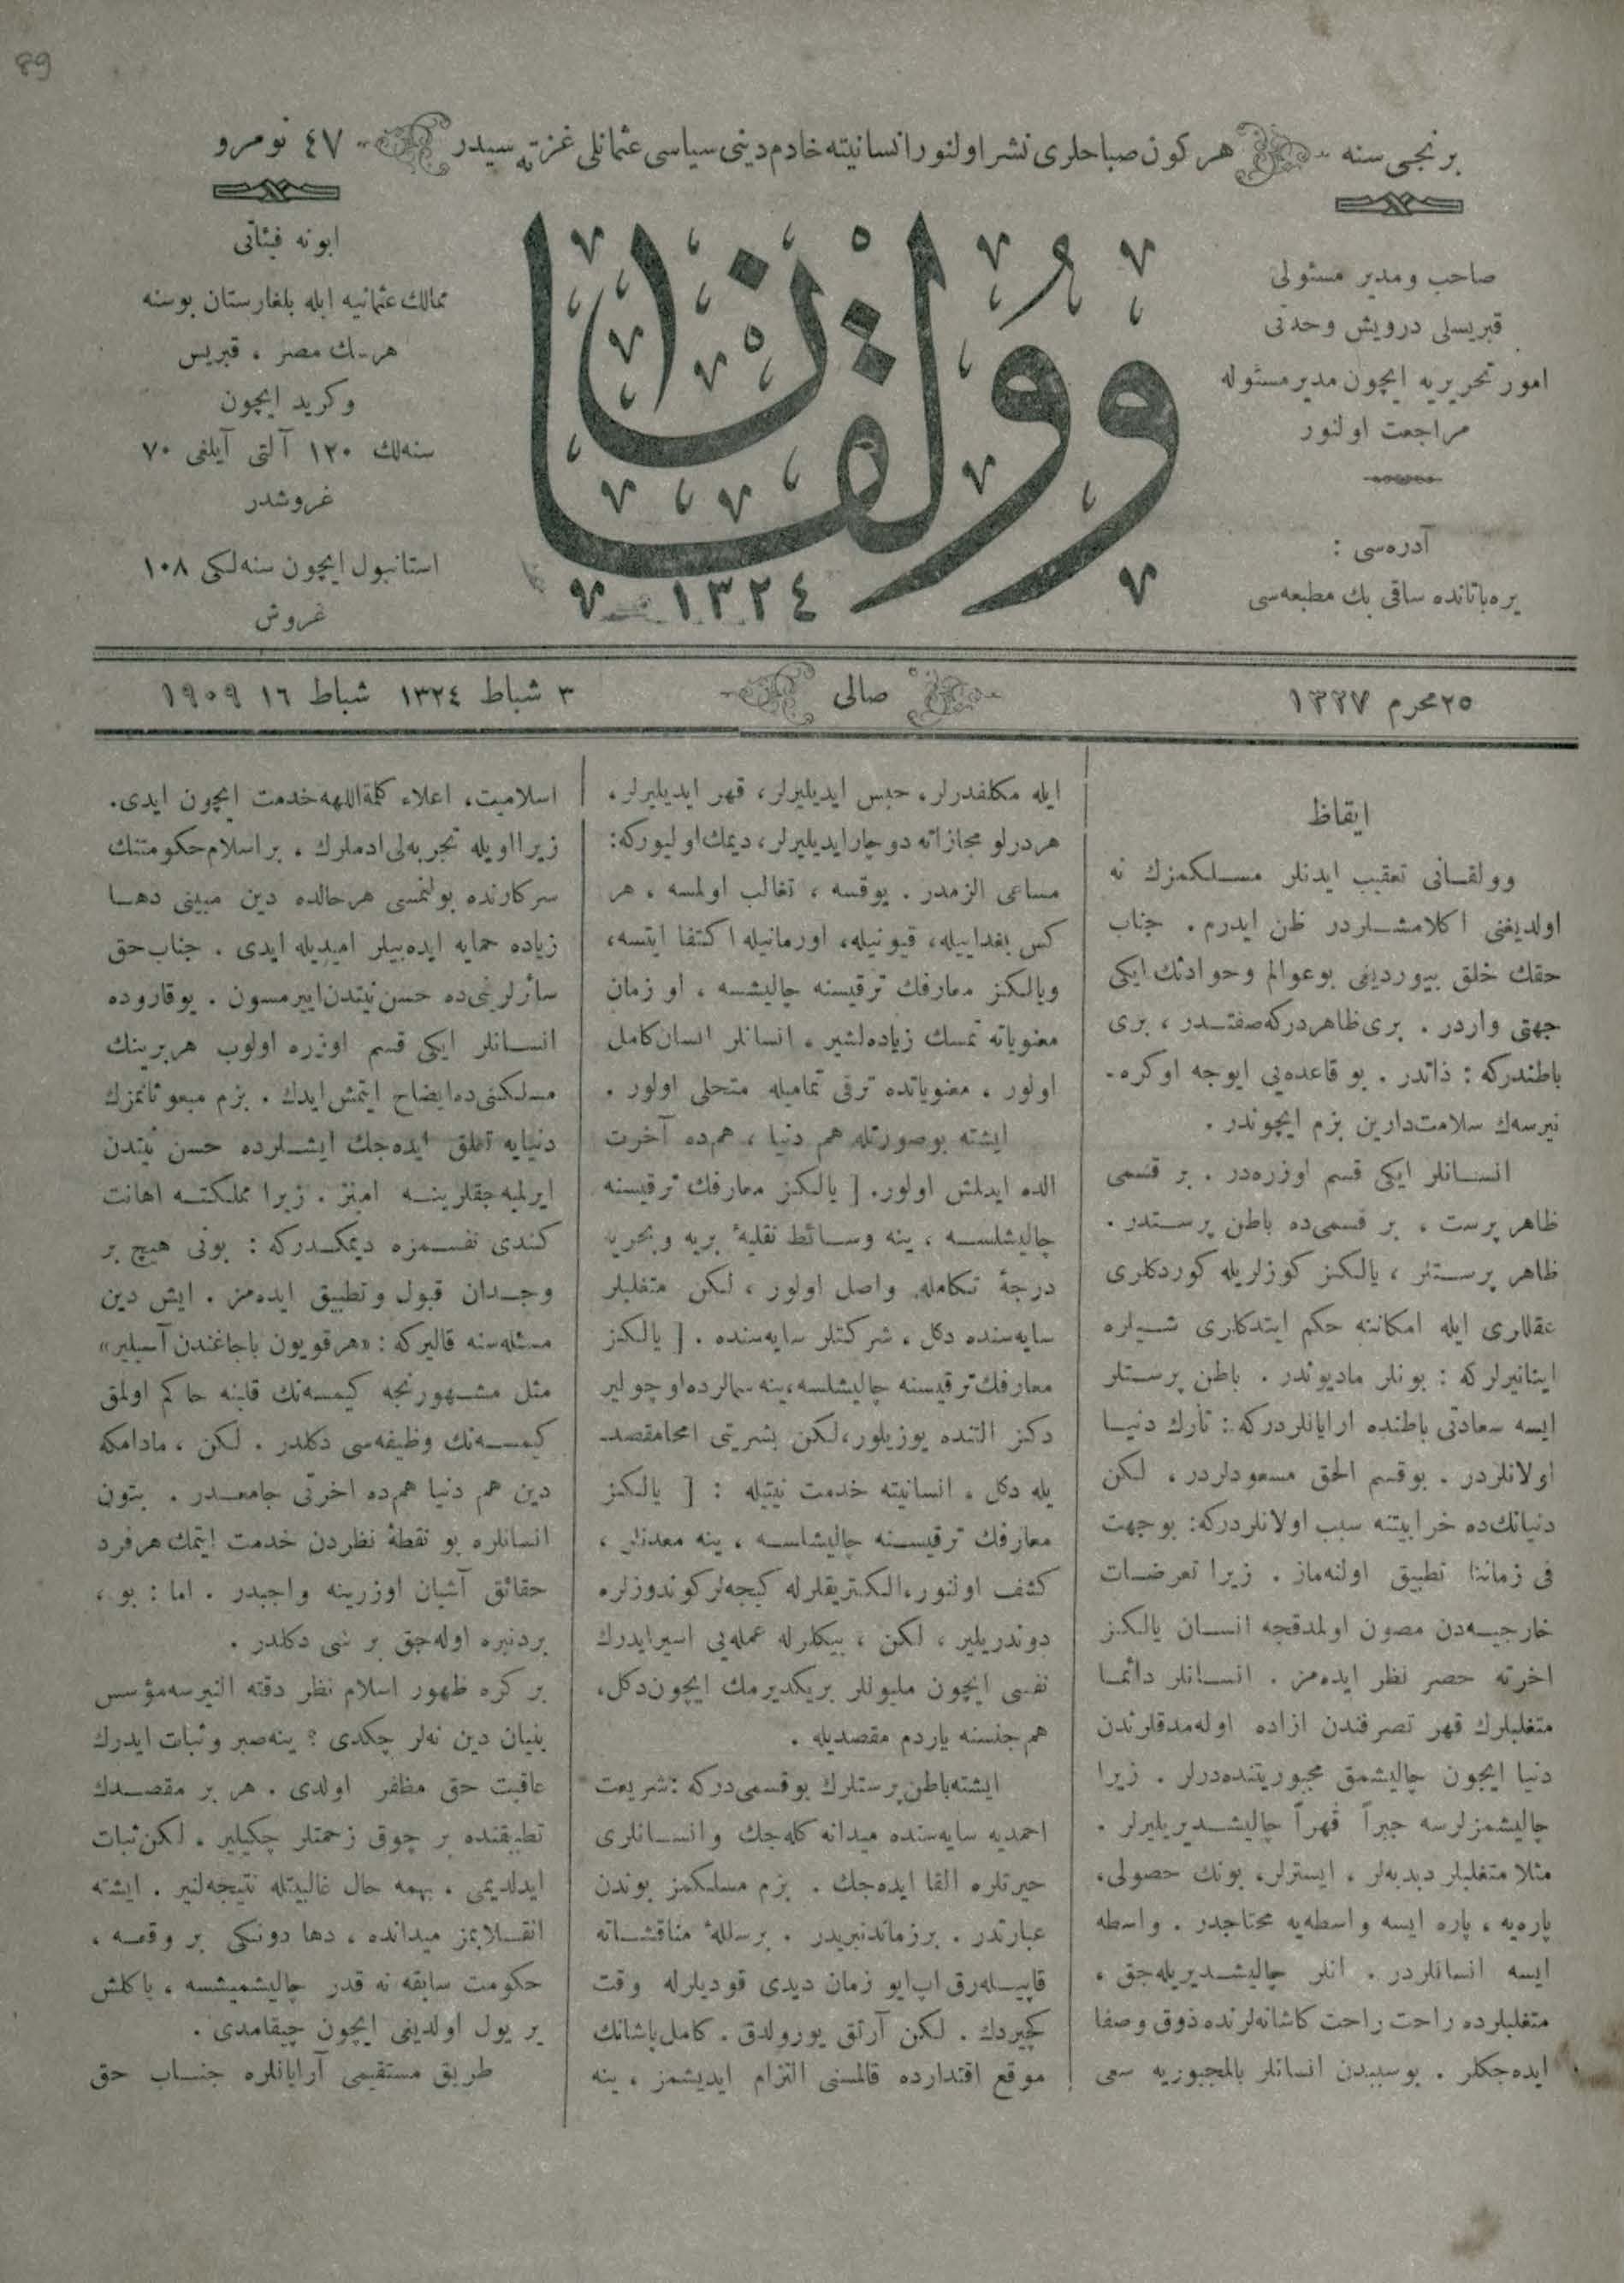 89
برنجی سنه هر كون صباحلری نشر اولنور انسانیته خادم دینی سیاسی عثمانلی غزته سیدر ٤٧ نومرو
صاحب و مدیر مسئولی
قبریسلی درویش وحدتی
امور تحریریه ایچون مدیر مسئوله
مراجعت اولنور
آدره‌سی :
یره‌باتانده ساقی بك مطبعه‌سی
وولقان
١٣٢٤
ابونه فیئاتی
ممالك عثمانیه ایله بلغارستان بوسنه
هرسك مصر ، قبریس
و كرید ایچون
سنه‌لك ١٢٠ آلتی آیلغی ٧٠
غروشدر
استانبول ایچون سنه‌لكی ١٠٨
غروش
٢٥ محرم ١٣٢٧ صالی ٣ شباط ١٣٢٤ شباط ١٦ ١٩٠٩
ایقاظ
وولقـانی تعقیب ایدنلر مسـلـكمزك نه
اولدیغنی اكلامشـلردر ظن ایدرم . جناب
حقك خلق بیوردیغی بو عوالم و حوادثك ایكی
جهتی واردر . بری ظاهردر كه صفتـدر ، بری
باطندر كه : ذاتدر . بو قاعده‌یی ایوجه اوكره-
نیرسه‌ك سلامت دارین بزم ایچوندر .
انسـانلر ایكی قسم اوزره‌در . بر قسمی
ظاهر پرست ، بر قسمی ده باطن پرسـتدر .
ظاهر پرسـتلر ، یالـكز كوزلریله كوردكلری
عقللری ایله امكاننه حكم ایتدكلری شـیلره
اینانیرلر كه : بونلر مادیوندر . باطن پرسـتلر
ایسه سعادتی باطنده ارایانلردر كه : تارك دنیـا
اولانلردر . بو قسم الحق مسعودلردر ، لكن
دنیانك ده خرابیتنه سبب اولانلردر كه : بو جهت
فی زماننا تطبیق اولنه‌ماز . زیرا تعرضـات
خارجیـه‌دن مصون اولمدقجه انسـان یالـكز
اخرته حصر نظر ایده‌مز . انسـانلر دائمـا
متغلبلرك قهر تصرفندن ازاده اوله‌مدقلرندن
دنیا ایچون چالیشمق مجبوریتنده‌درلر . زیرا
چالیشمزلرسه جبراً قهراً چالیشـدیریلیرلر .
مثلا متغلبلر دبدبه‌لر ، ایسترلر، بونك حصولی،
پاره‌یه ، پاره ایسه واسطه‌یه محتاجدر . واسطه
ایسه انسانلردر . انلر چالیشـدیریله‌جق ،
متغلبلرده راحت راحت كاشانه‌لرنده ذوق و صفا
ایده‌جكلر . بو سببدن انسانلر بالمجبوریه سعی
ایله مكلفدرلر، حبس ایدیلیرلر، قهر ایدیلیرلر،
هر درلو مجازاته دوچار ایدیلیرلر، دیمك اولیور كه:
مساعی الزمدر . یوقسه ، تغالب اولمسه ، هر
كس بغداییله، قیونیله، اورمانیله اكتفا ایتسه،
و یالـكز معارفك ترقیسنه چالیشسه ، او زمان
معنویاته تمسك زیاده‌لشیر ، انسانلر انسان كامل
اولور ، معنویاتده ترقی تمامیله متحلی اولور .
ایشته بو صورتله هم دنیا ، هم ده آخرت
الده ایدلمش اولور. [ یالـكز معارفك ترقیسنه
چالیشلسـه ، ینه وسـائط نقلیهٔ بریه و بحریه
درجهٔ تكامله واصل اولور ، لـكن متغلبلر
سایه‌سنده دكل ، شركتلر سایه‌سنده . [ یالـكز
معارفك ترقیسنه چالیشلسه، ینه سمالرده اوچولیر
دكز التنده یوزیلور، لـكن بشریتی امحا مقصد-
یله دكل ، انسانیته خدمت نیتیله : [ یالـكز
معارفك ترقیسـنه چالیشلسـه ، ینه معدنلر ،
كشف اولنور، الكتریقلرله كیجه‌لر كوندوزلره
دوندریلیر ، لكن ، بیكلرله عمله‌یی اسیر ایدرك
نفسی ایچون ملیونلر بریكدیرمك ایچون دكل،
هم جنسنه یاردم مقصدیله .
ایشته باطن پرستلرك بو قسمی در كه : شریعت
احمدیه سایه‌سنده میدانه كله‌جك و انسـانلری
حیرتلره القا ایده‌جك . بزم مسلـكمز بوندن
عبارتدر . بر زماندنبریدر . بر سلسلهٔ مناقشـاته
قاپیـله‌رق اپ ایو زمان دیدی قودیلرله وقت
كچیردك . لـكن آرتق یورولدق . كامل پاشانك
موقع اقتدارده قالمسنی التزام ایدیشمز ، ینه
اسلامیت، اعلاء كلمة اللهه خدمت ایچون ایدی.
زیرا اویله تجربه‌لی ادملرك ، بر اسلام حكومتنك
سركارنده بولنمسی هر حالده دین مبینی دهـا
زیاده حمایه ایده‌بیلر امیدیله ایدی . جناب حق
سائرلرینی ده حسن نیتدن اییرمسون . یوقاروده
انسـانلر ایكی قسم اوزره اولوب هر برینك
مسلـكنی ده ایضاح ایتمش ایدك . بزم مبعوثانمزك
دنیایه تعلق ایده‌جك ایشـلرده حسن نیتدن
ایرلمیه‌جقلرینـه امینز . زیرا مملكتـه اهانت
كندی نفسـمزه دیمكـدر كه : بونی هیچ بر
وجـدان قبول و تطبیق ایده‌مز . ایش دین
مسئله‌سنه قالیر كه : «هر قویون باجاغندن آصیلیر»
مثل مشـهورنجه كیمسه‌نك قلبنه حاكم اولمق
كیمسـه‌نك وظیفه‌سی دكلدر . لـكن ، مادامكه
دین هم دنیا هم ده اخرتی جامعـدر . بتون
انسانلره بو نقطهٔ نظردن خدمت ایتمك هر فرد
حقائق آشیان اوزرینه واجبدر . اما : بو ،
بردنبره اوله‌جق بر شی دكلدر .
بر كره ظهور اسلام نظر دقته النیرسه مؤسس
بنیان دین نه‌لر چكدی ؟ ینه صبر و ثبات ایدرك
عاقبت حق مظفر اولدی . هر بر مقصـدك
تطبیقنده بر چوق زحمتلر چكیلیر . لـكن ثبات
ایدلدیمی ، بهمه حال غالبیتله نتیجه‌لنیر . ایشته
انقـلابمز میدانده ، دها دونـكی بر وقعـه ،
حكومت سابقه نه قدر چالیشمیشسه ، یاكلش
بر یول اولدیغی ایچون چیقامدی .
طریق مستقیمی آرایانلره جنـاب حق